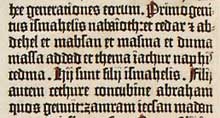 he generationes eorum. Primogeni
tus ismahelis nabaioth: et cedar et ab
dehel et mabsan et masma et duma
massa addad et thema iachur naphi
cedma. Hij sunt filij ismahelis. Filij
autem cethure concubine abraham
quos genuit: zamram iecsan madan